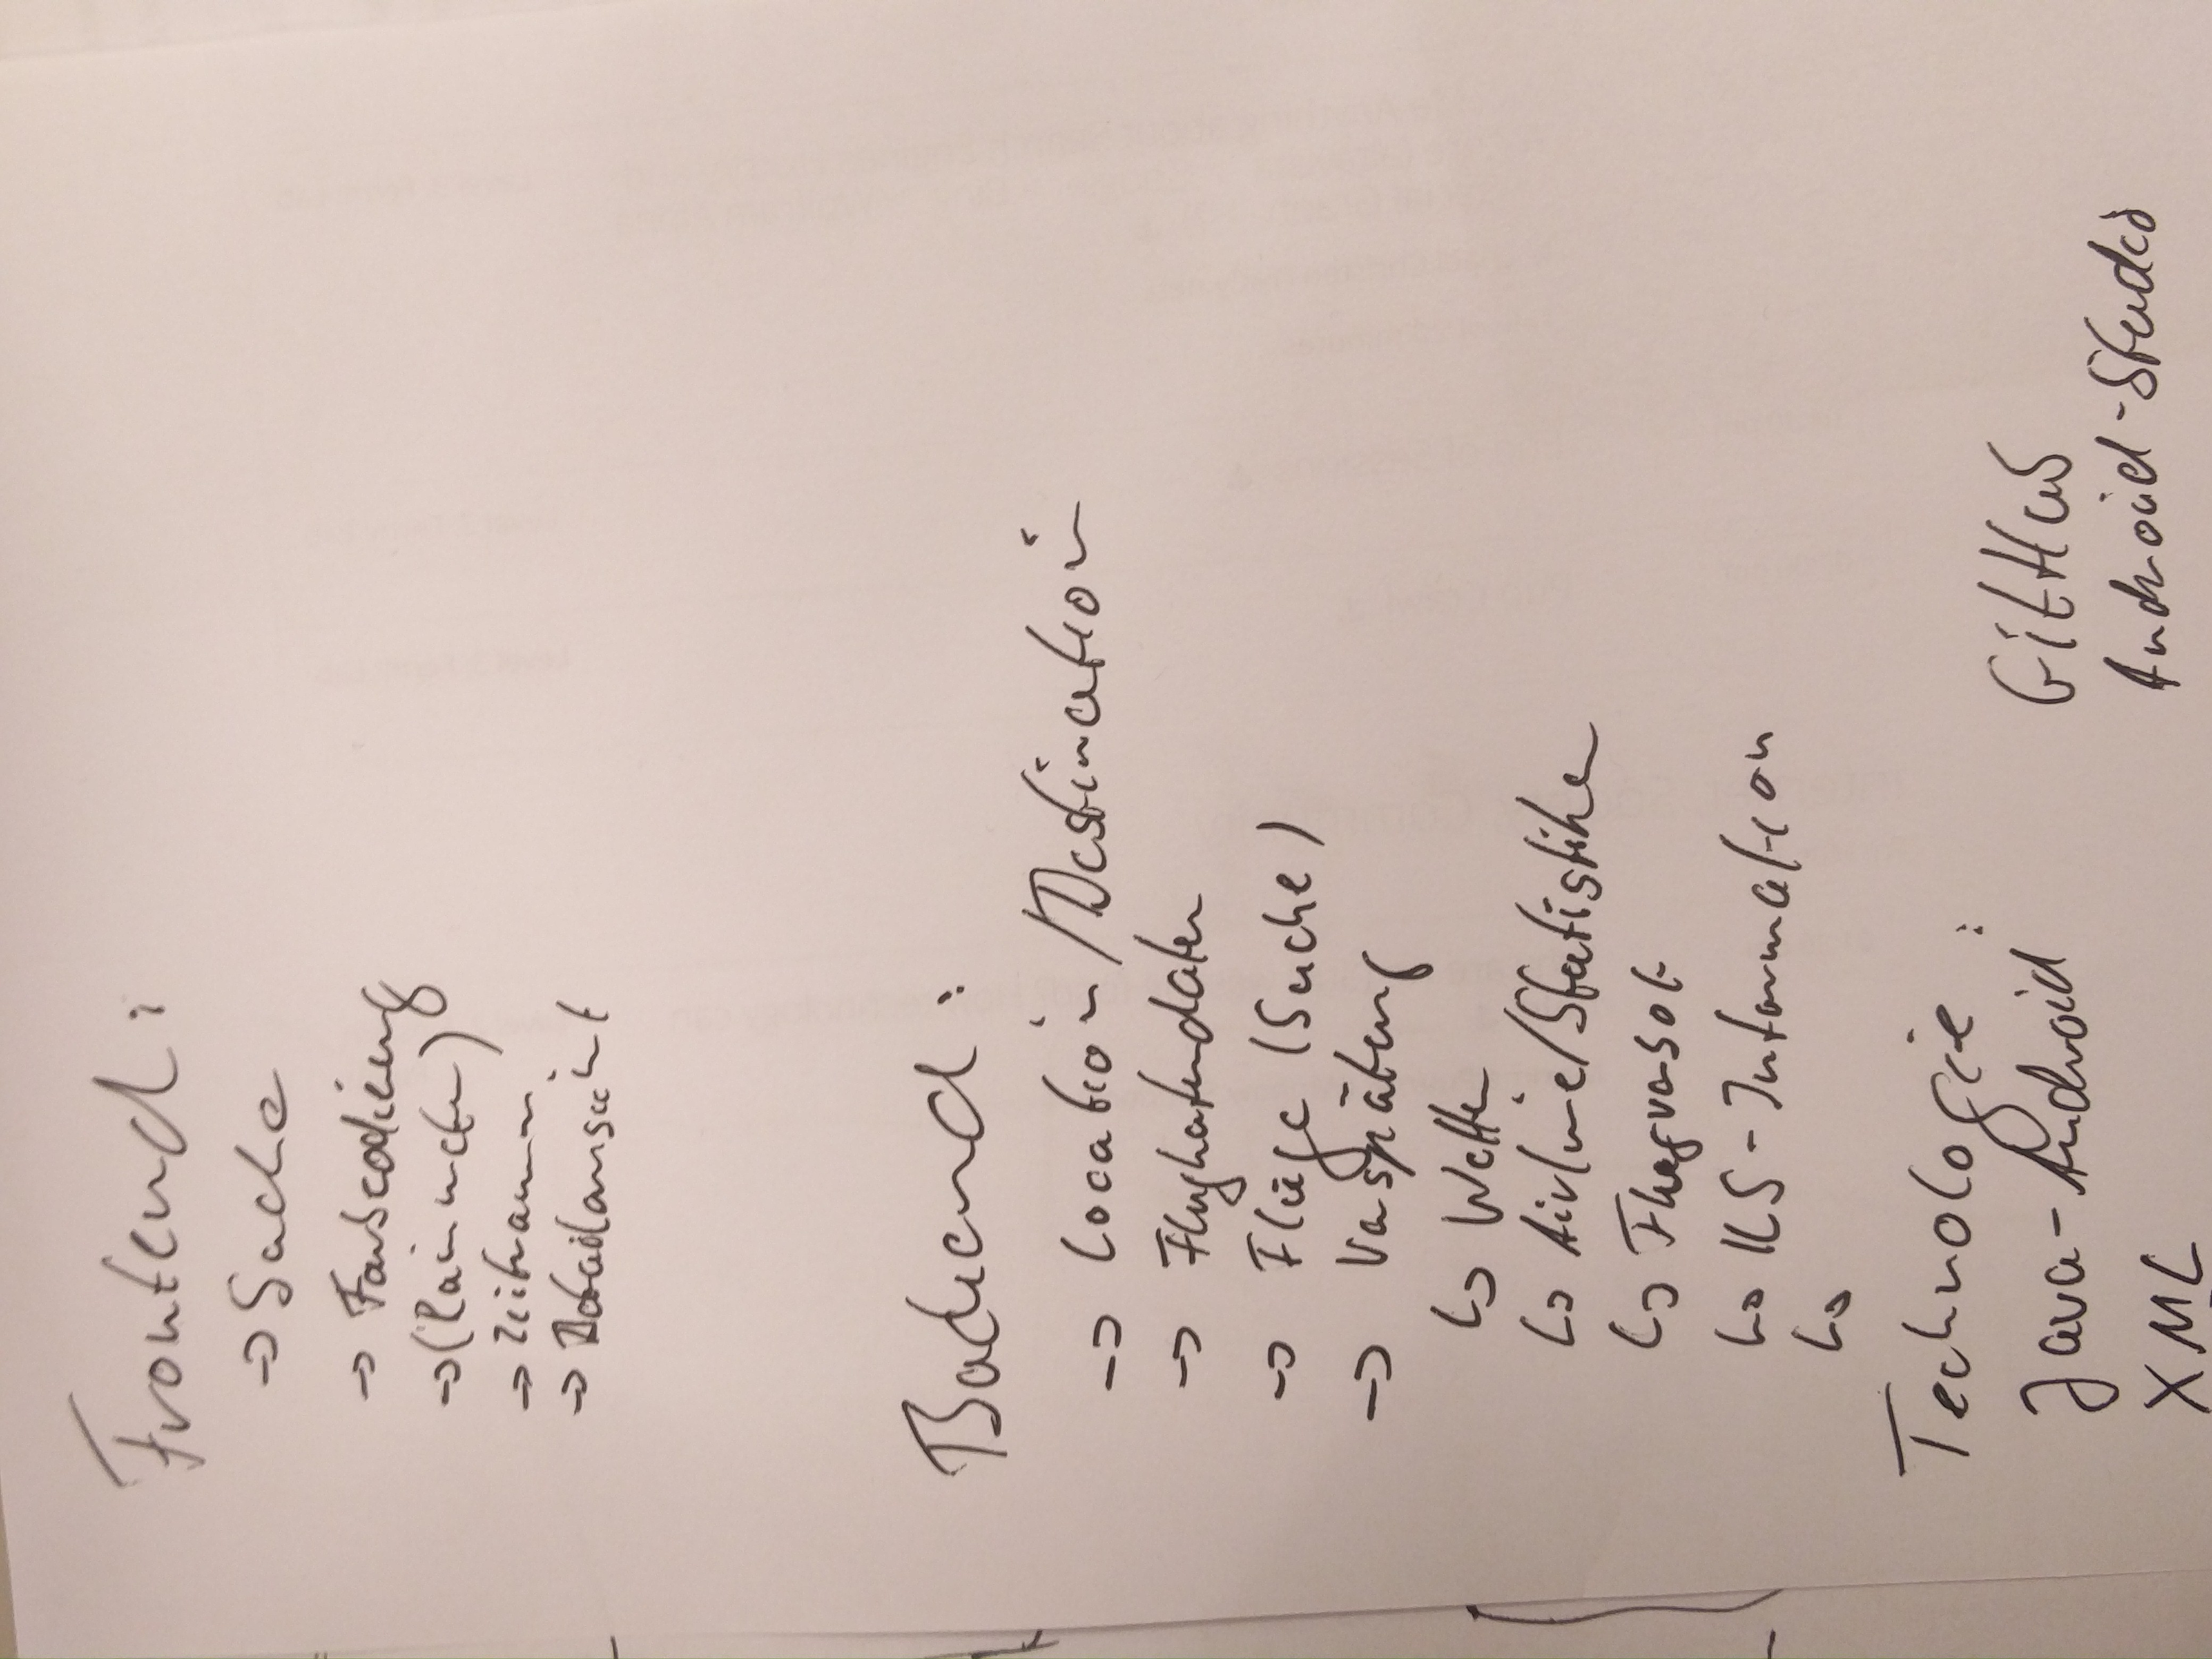 Frontend:
→ Suche
→ Farbcodierung
→ (Rainucter)
→ Zeitraum
→ Detailansicht
Backend:
→ Location/Destination
→ Flughafendaten
→ Flüge (Suche)
→ Verspätung
↳ Wetter
↳ Airline/Statistiken
↳ Flugversot
↳ ILS-Information
↳
Technologie:
Java-Android
XML
GitHub
Android-Studio